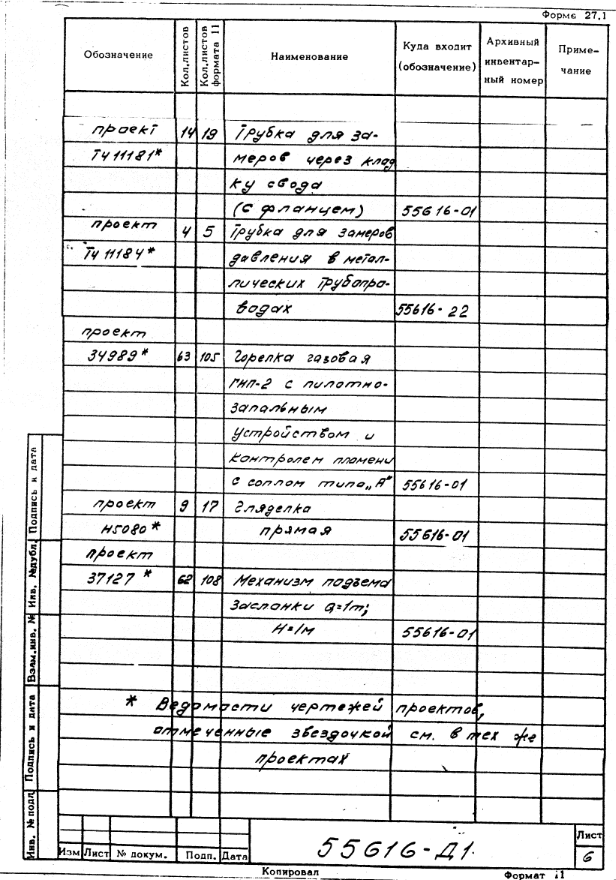 Форма 27.1
Обозначение
Кол.листов
Кол.листов формата 11
Наименование
Куда входит (обозначение)
Архивный инвентар-ный номер
Приме-чание
проект 14 19 Трубка для за-
Т411181* меров через клад
ку свода
(с фланцем) 55616-01
проект 4 5 Трубка для замеров
Т411184* давления в метал-
лических трубопро-
водах 55616-22
проект
34989* 63 105 Горелка газовая
ГНП-2 с пилотно-
запальным
устройством и
контролем пламени
с соплом типа „А" 55616-01
проект 9 17 Гляделка
Н5080* прямая 55616-01
проект
37127* 62 108 Механизм подъема
заслонки Q=1т;
Н=1м 55616-01
* Ведомости чертежей проектов,
отмеченные звездочкой см. в тех же
проектах
Инв. № подл
Подпись и дата
Взам.инв. №
Инв. №дубл.
Подпись и дата
Изм Лист № докум. Подп. Дата
55616-Д1
Лист
6
Копировал
Формат 11